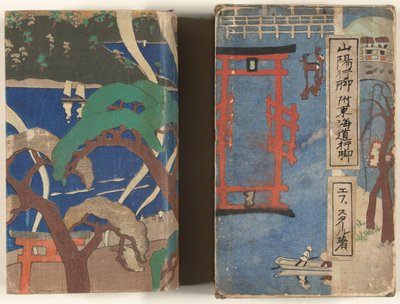 山陽行脚 附東海道行脚
エフ、スタール著